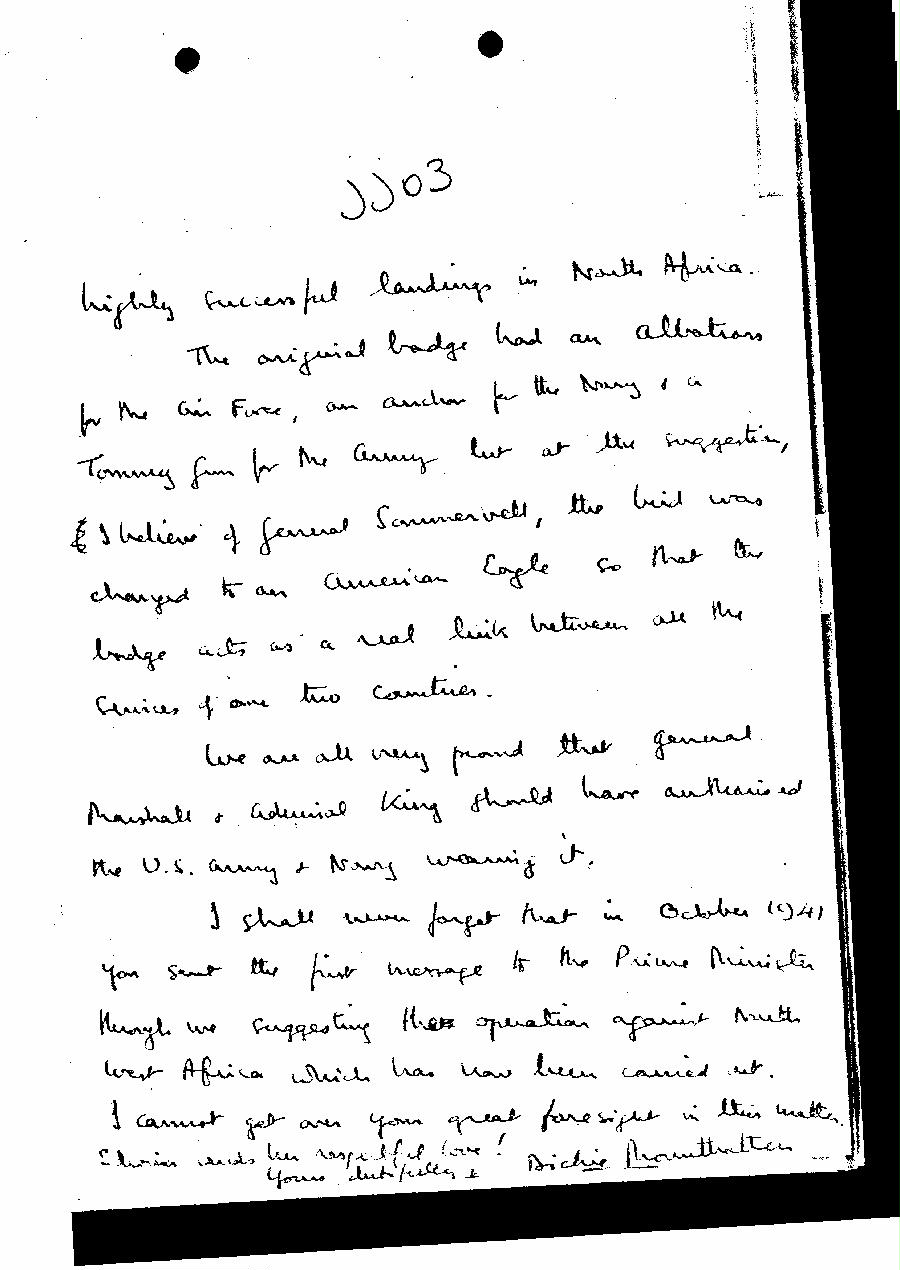 JJ03
highly successful landings in North Africa.
The original badge had an albatross
for the Air Force, an anchor for the Navy & a
Tommy Gun for the Army but at the suggestion,
I believe of General Sommervell, the bird was
changed to an American Eagle so that the
badge acts as a real link between all the
Services of our two countries.
We are all very proud that General
Marshall & Admiral King should have authorised
the U.S. Army & Navy wearing it.
I shall never forget that in October 1941
you sent the first message to the Prime Minister
through me suggesting the operation against North
West Africa which has now been carried out.
I cannot get over your great foresight in this matter.
Edwina sends her respectful love!
Yours dutifully & Dickie Mountbatten